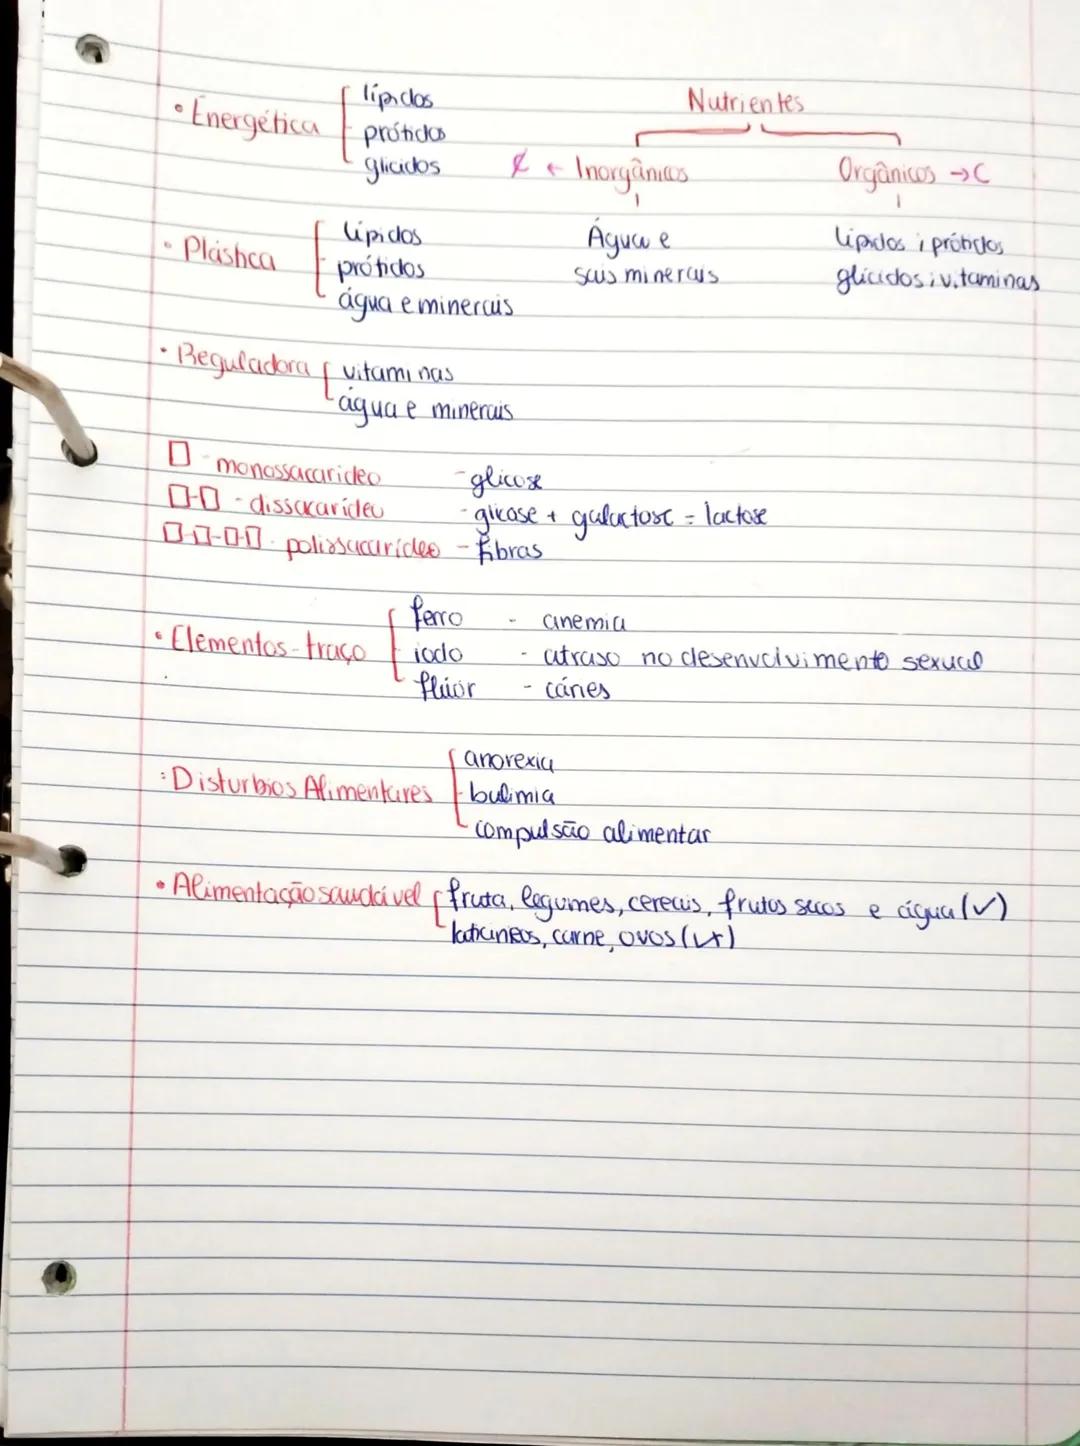 • Energética
lípidos
prótidos
glícidos
Nutrientes
₵ ← Inorgânicos
Orgânicos → C
Água e
sais minerais
lípidos; prótidos
glícidos; vitaminas
• Plástica
lípidos
prótidos
água e minerais
• Reguladora
vitaminas
água e minerais
monossacarídeo - glicose
- dissacarídeo - glicose + galactose = lactose
- polissacarídeo - fibras
• Elementos-traço
ferro - anemia
iodo - atraso no desenvolvimento sexual
flúor - cáries
• Disturbios Alimentares
anorexia
bulimia
compulsão alimentar
• Alimentação saudável
fruta, legumes, cereais, frutos secos e água (✓)
laticíneos, carne, ovos